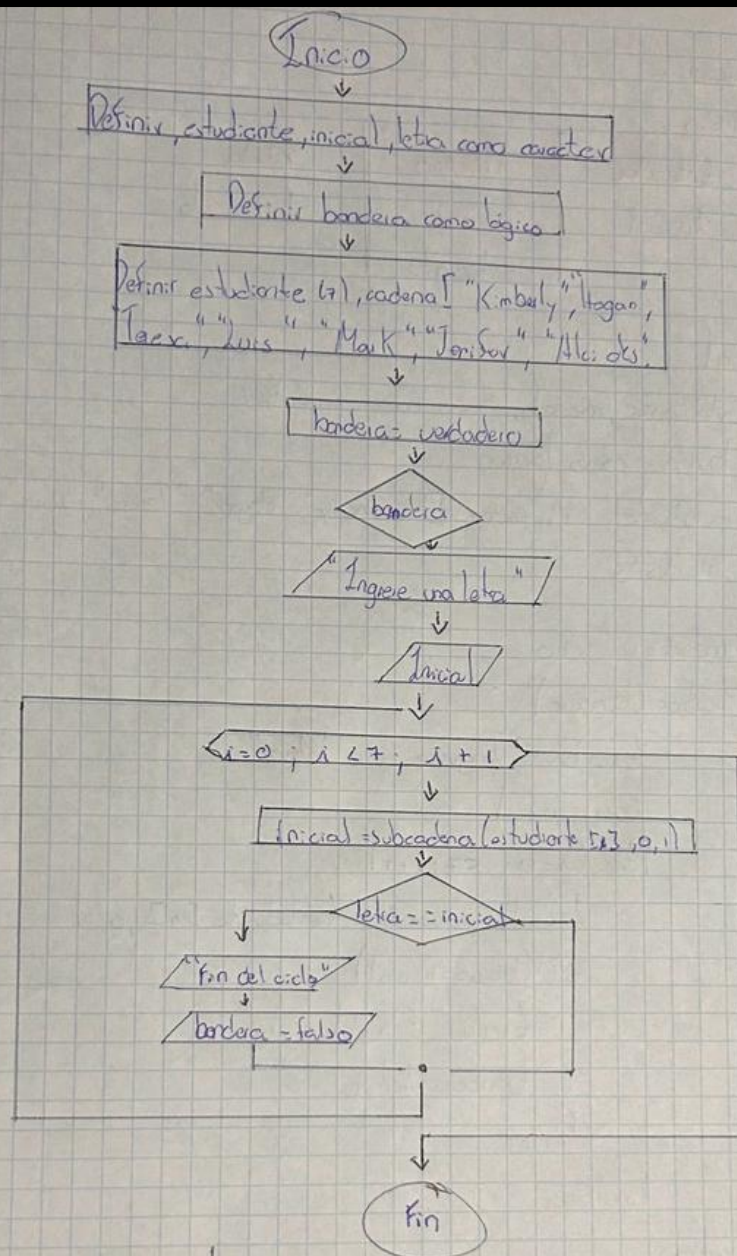 Inicio
Definir, estudiante, inicial, letra como caracter
Definir bandera como lógico
Definir estudiante (7), cadena ["Kimberly", "Hogan",
"Luis", "Mark",
bandera = verdadero
bandera
"Ingrese una letra"
Inicial
i=0 ; i < 7 ; i + 1
Inicial = subcadena (estudiante [i], 0, 1)
letra == inicial
"Fin del ciclo"
bandera = falso
Fin